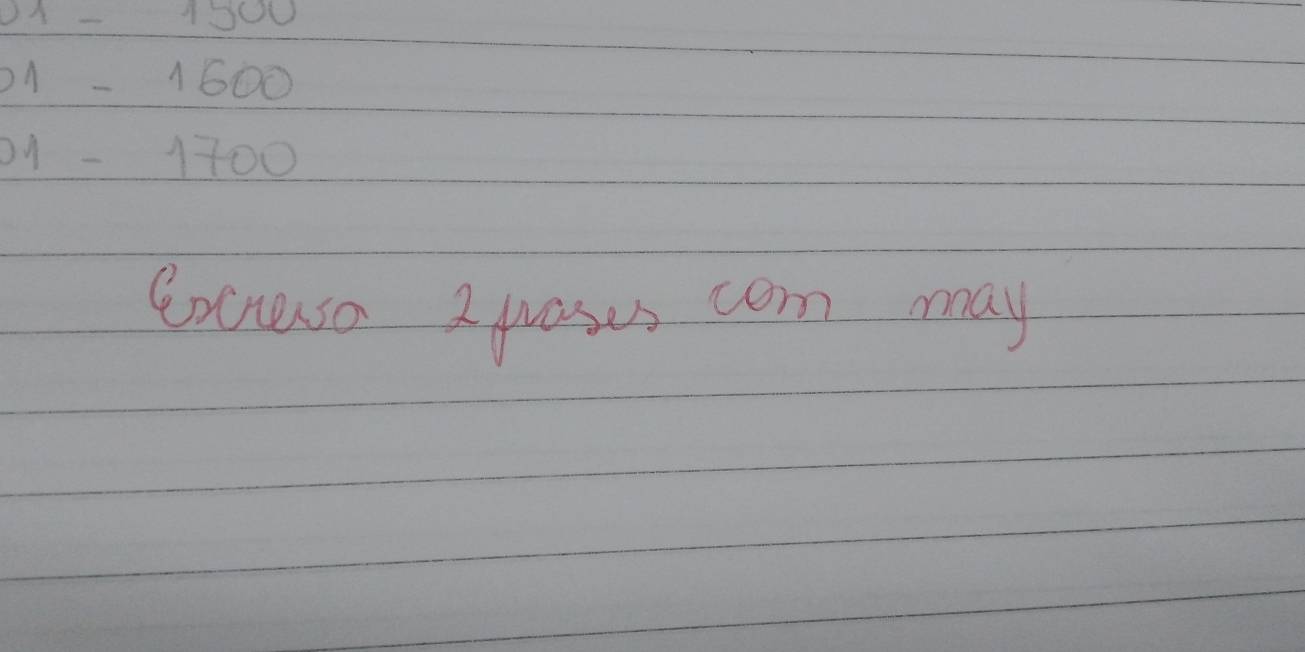 01 - 1500
01 - 1600
01 - 1700
Escreva 2 frases com may